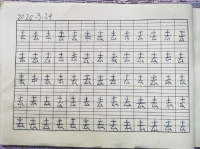 2020.3.24
去去去去去去去去去去去去
去去去去去去去去去去去去
去去去去去去去去去去去去
去去去去去去去去去去去去
去去去去去去去去去去去去